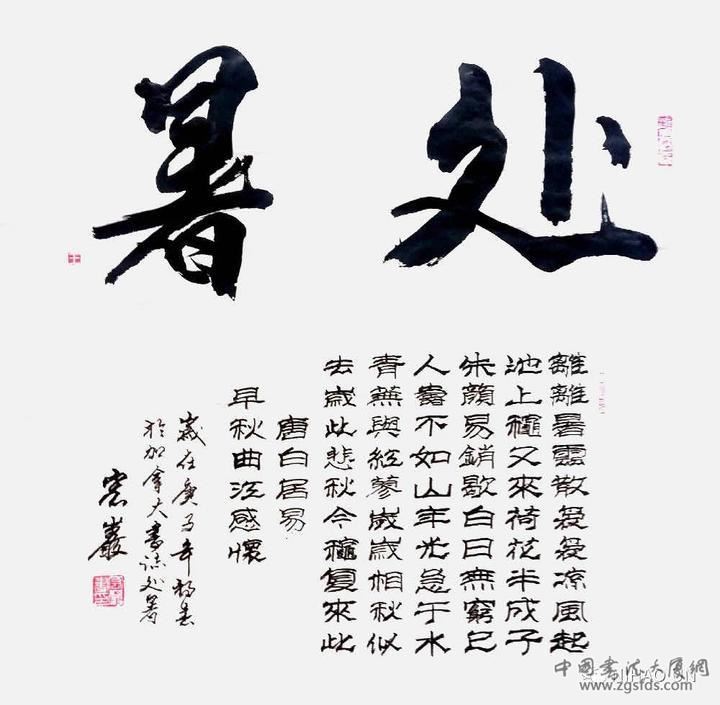 处暑
離離暑雲散袅袅凉風起
池上穐又來荷花半成子
朱顏易銷歇白日無窮已
人壽不如山年光急于水
青蕪與紅蓼歲歲相秋似
去歲此悲秋今穐复來此
唐白居易
早秋曲江感懷
歲在庚子年初春
於加拿大書誌处暑
中國書法大厦網
www.zgsfds.com